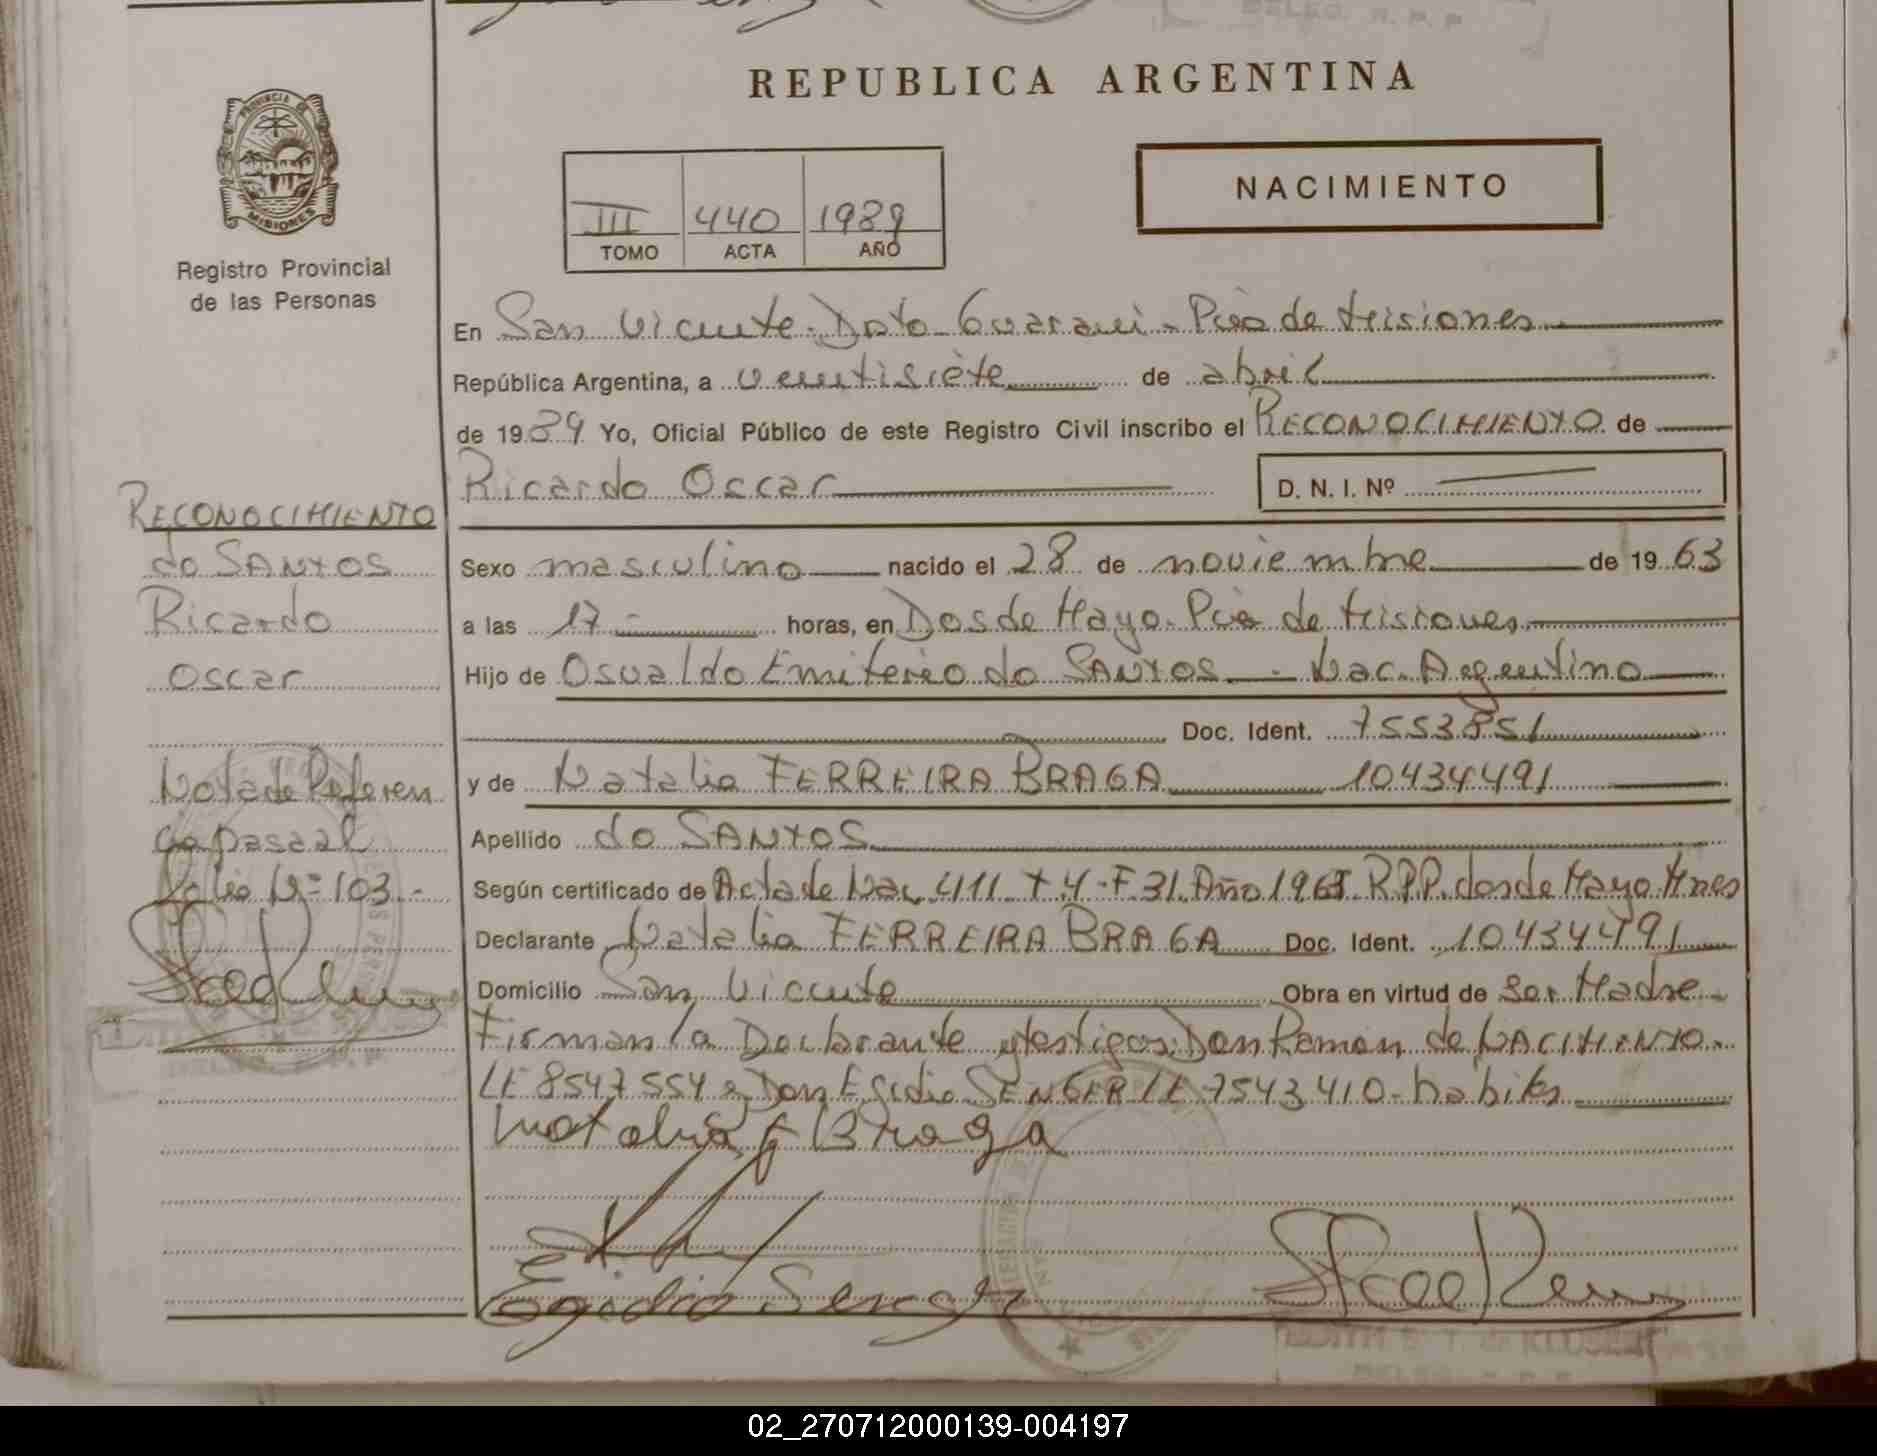 REPUBLICA ARGENTINA
PROVINCIA DE
MISIONES
Registro Provincial
de las Personas
NACIMIENTO
III 440 1989
TOMO ACTA AÑO
En San Vicente - Dpto Guarani - Pcia de Misiones
República Argentina, a ventisiete de abril
de 1989 Yo, Oficial Público de este Registro Civil inscribo el RECONOCIMIENTO de
Ricardo Oscar
D. N. I. Nº
RECONOCIMIENTO
do SANTOS
Ricardo
Oscar
Nota de Referen
cia pasa al
Folio Nº 103.-
Sexo masculino nacido el 28 de noviembre de 1963
a las 17 - horas, en Dos de Mayo - Pcia de Misiones
Hijo de Osvaldo Emiterio do SANTOS - Nac. Argentino
Doc. Ident. 7553851
y de Natalia FERREIRA BRAGA 10434491
Apellido do SANTOS
Según certificado de Acta de Nac. 411 T 4 - F 31 Año R.P.P. dos de Mayo Mnes
Declarante Natalia FERREIRA BRAGA Doc. Ident. 10434491
Domicilio San Vicente Obra en virtud de Ser Madre
Firman la Declarante y testigos: Don Ramon de NACIMIENTO
LE 8547554 y Don Egidio SENGER LE 7543410 - habiles
Natalia F Braga
Egidio Senger
02_270712000139-004197